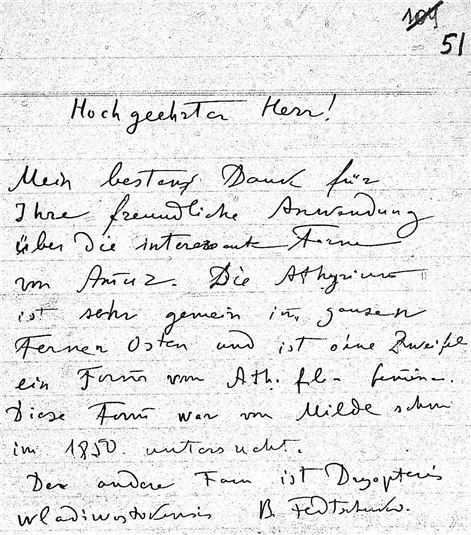 109
51
Hochgeehrter Herr!
Mein bestens Dank für
Ihre freundliche Anwendung
über die interessante Farne
von Amur. Die Athyrium
ist sehr gemein im ganzen
Fernen Osten und ist ohne Zweifel
ein Form vom Ath. fl- femina.
Diese Form war von Milde schon
im 1850 untersucht.
Der andere Farn ist Dryopteris
wladiwostokensis B. Fedtschenko.